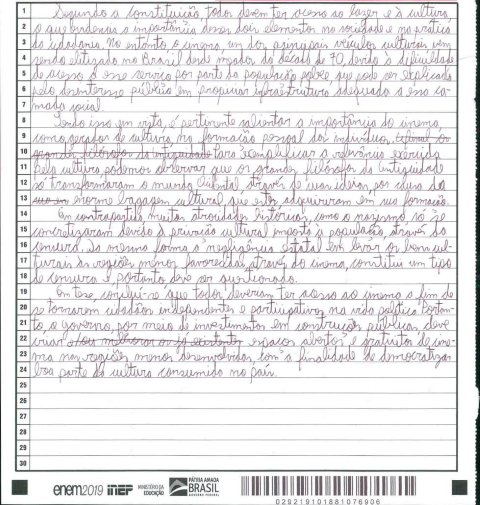 1 Segundo a constituição, todos devem ter acesso ao lazer e à cultura
2 o que evidencia a importância desses dois elementos na sociedade e na prática
3 da cidadania. No entanto o cinema, um dos principais veículos culturais vem
4 sendo elitizado no Brasil desde meados da década de 70, devido à dificuldade
5 de acesso a esse serviço por parte da população pobre, que pode ser explicado
6 pelo desinteresse público em propiciar infraestrutura adequada a essa ca-
7 mada social.
8 Tendo isso em vista, é pertinente salientar a importância do cinema
9 como gerador de cultura na formação pessoal dos indivíduos, os
10 grandes filósofos da antiguidade Para exemplificar a relevância exercida
11 pela cultura, podemos observar que os grandes filósofos da antiguidade
12 só transformaram o mundo através de suas ideias, por causa da
13 enorme bagagem cultural que estes adquiriram em sua formação.
14 Em contrapartida muitas atrocidades históricas, como o nazismo só se
15 concretizaram devido à privação cultural imposta à população, através da
16 censura. Da mesma forma a negligência estatal em levar os bens cul-
17 turais às regiões menos favorecidas, através do cinema, constitui um tipo
18 de censura e portanto deve ser questionada.
19 Em tese, conclui-se que todos deveriam ter acesso ao cinema a fim de
20 se tornarem cidadãos independentes e participativos na vida política. Portan-
21 to, o governo, por meio de investimentos em construções públicas, deve
22 criar e/ou melhorar os já existentes espaços abertos e gratuitos de cine-
23 ma nas regiões menos desenvolvidas, com a finalidade de democratizar
24 essa parte da cultura consumida no país.
25
26
27
28
29
30
enem2019 inep MINISTÉRIO DA EDUCAÇÃO PÁTRIA AMADA BRASIL GOVERNO FEDERAL
029219101881076906